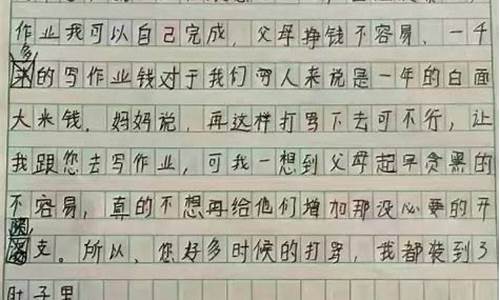 作业我可以自己完成，父母挣钱不容易，一千
多的写作业钱对于我们穷人来说是一年的白面
大米钱。妈妈说，再这样打骂下去可不行，让
我跟您去写作业，可我一想到父母起早贪黑的
不容易，真的不想再给他们增加那没必要的开
支。所以，您好多时候的打骂，我都装到了
肚子里